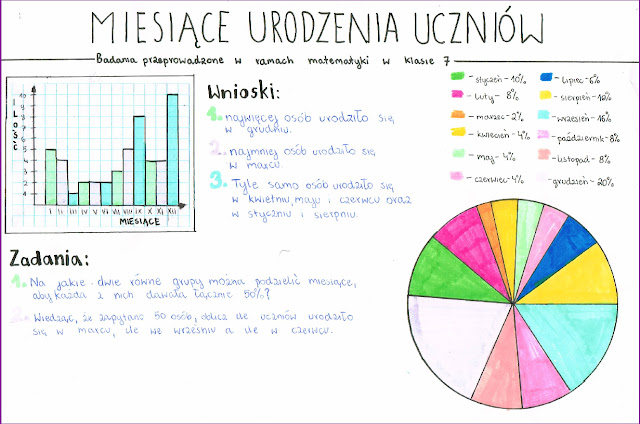 MIESIĄCE URODZENIA UCZNIÓW
Badania przeprowadzone w ramach matematyki w klasie 7
ILOŚĆ
I II III IV V VI VII VIII IX X XI XII
MIESIĄCE
Wnioski:
1. najwięcej osób urodziło się
w grudniu.
2. najmniej osób urodziło się
w marcu.
3. Tyle samo osób urodziło się
w kwietniu, maju i czerwcu oraz
w styczniu i sierpniu.
- styczeń - 10%
- luty - 8%
- marzec - 2%
- kwiecień - 4%
- maj - 4%
- czerwiec - 4%
- lipiec - 6%
- sierpień - 10%
- wrzesień - 16%
- październik - 8%
- listopad - 8%
- grudzień - 20%
Zadania:
1. Na jakie dwie równe grupy można podzielić miesiące,
aby każda z nich dawała łącznie 50%?
2. Wiedząc, że zapytano 50 osób, oblicz ile uczniów urodziło
się w marcu, ile we wrześniu a ile w czerwcu.